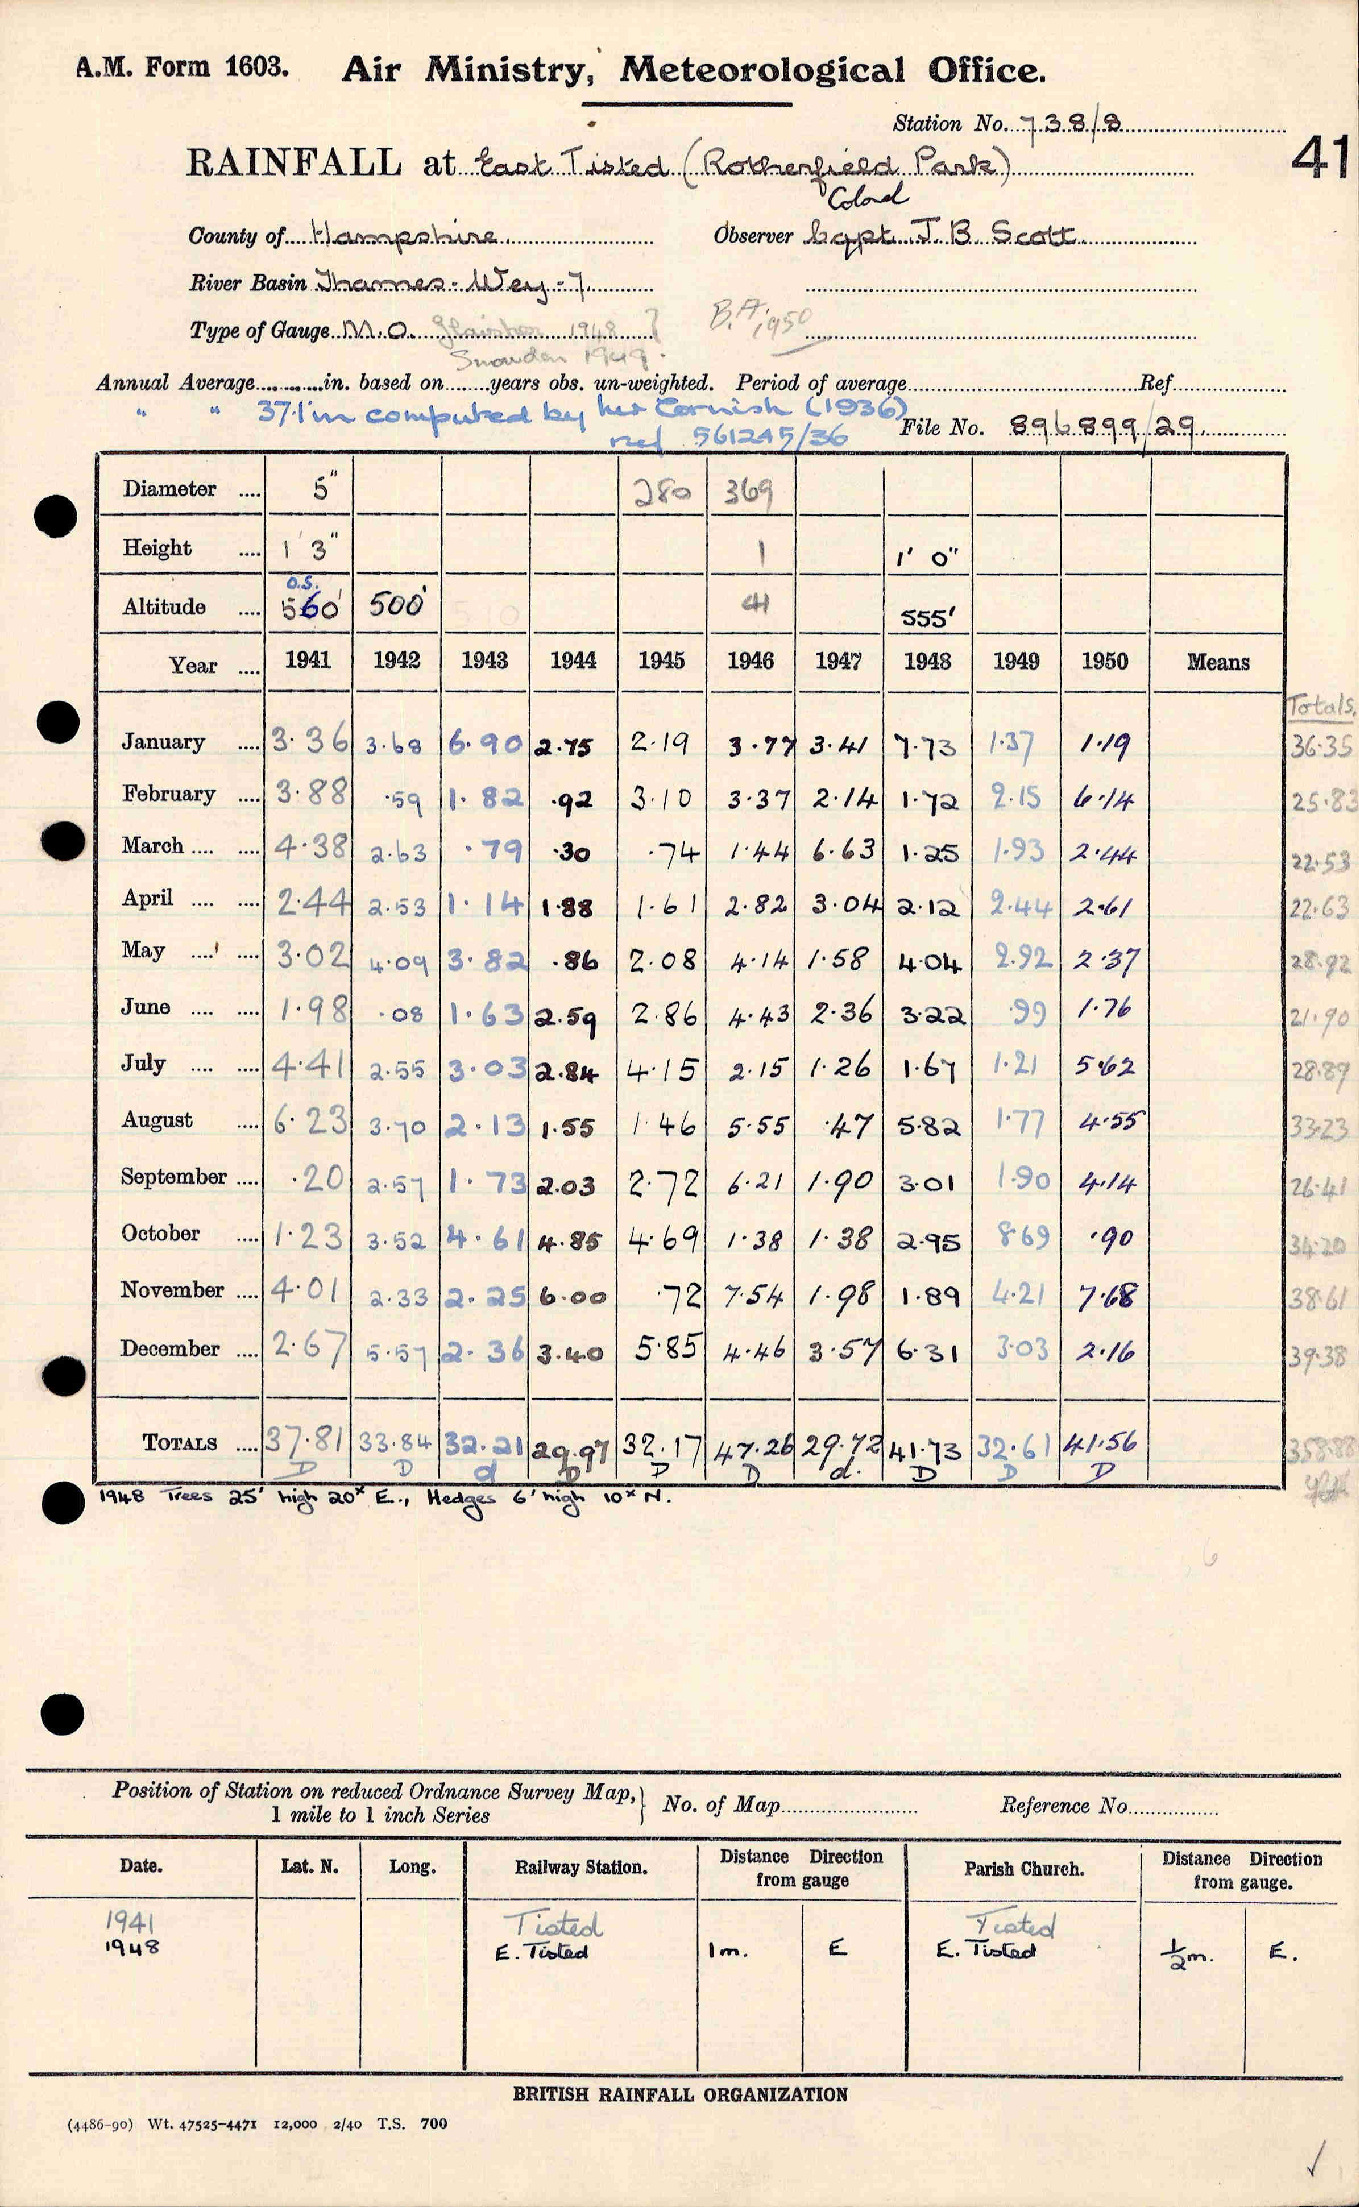 A.M. Form 1603. Air Ministry, Meteorological Office.
Station No. 738/8
41
RAINFALL at East Tisted (Rotherfield Park)
Colonel
County of Hampshire Observer Capt J. B. Scott
River Basin Thames - Wey - 7.
Type of Gauge M.O. Glaisher 1948 } B.A. 1950
Snowdon 1949.
Annual Average in. based on years obs. un-weighted. Period of average Ref
" " 37.1 in computed by Cornish (1936) File No. 896899/29
ref 561245/36
Diameter 5" 280 369
Height 1' 3" 1 1' 0"
O.S.
Altitude 560' 500' 510 41 555'
Year 1941 1942 1943 1944 1945 1946 1947 1948 1949 1950 Means
Totals.
January 3.36 3.68 6.90 2.75 2.19 3.77 3.41 7.73 1.37 1.19 36.35
February 3.88 .59 1.82 .92 3.10 3.37 2.14 1.72 2.15 6.14 25.83
March 4.38 2.63 .79 .30 .74 1.44 6.63 1.25 1.93 2.44 22.53
April 2.44 2.53 1.14 1.88 1.61 2.82 3.04 2.12 2.44 2.61 22.63
May 3.02 4.09 3.82 .86 2.08 4.14 1.58 4.04 2.92 2.37 28.92
June 1.98 .08 1.63 2.59 2.86 4.43 2.36 3.22 .99 1.76 21.90
July 4.41 2.55 3.03 2.84 4.15 2.15 1.26 1.67 1.21 5.62 28.89
August 6.23 3.70 2.13 1.55 1.46 5.55 .47 5.82 1.77 4.55 33.23
September .20 2.57 1.73 2.03 2.72 6.21 1.90 3.01 1.90 4.14 26.41
October 1.23 3.52 4.61 4.85 4.69 1.38 1.38 2.95 8.69 .90 34.20
November 4.01 2.33 2.25 6.00 .72 7.54 1.98 1.89 4.21 7.68 38.61
December 2.67 5.57 2.36 3.40 5.85 4.46 3.57 6.31 3.03 2.16 39.38
TOTALS 37.81 33.84 32.21 29.97 32.17 47.26 29.72 41.73 32.61 41.56 358.88
D D d D D D d. D D D
1948 Trees 25' high 20ˣ E., Hedges 6' high 10ˣ N.
6
Position of Station on reduced Ordnance Survey Map, 1 mile to 1 inch Series } No. of Map Reference No.
Date. Lat. N. Long. Railway Station. Distance Direction from gauge Parish Church. Distance Direction from gauge.
1941 Tisted Tisted
1948 E. Tisted 1m. E E. Tisted ½m. E.
BRITISH RAINFALL ORGANIZATION
(4486-90) Wt. 47525-4471 12,000 2/40 T.S. 700